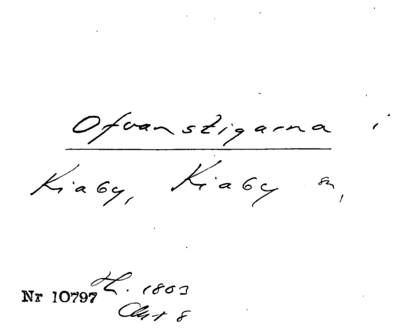 Ofvanstigarna i
Kiaby, Kiaby sn,
Nr 10797 th. 1803
Akt 8